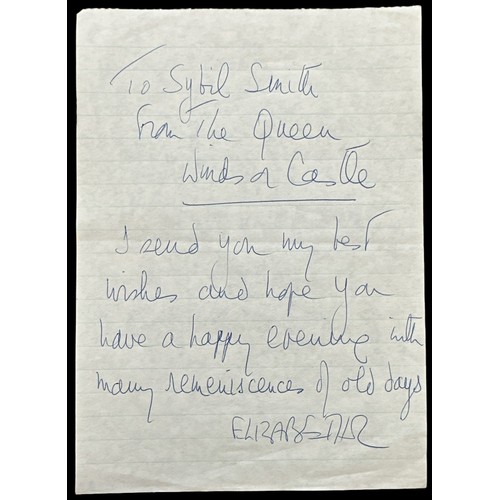 To Sybil Smith
From The Queen
Windsor Castle
I send you my best
wishes and hope you
have a happy evening with
many reminiscences of old days
ELIZABETH R